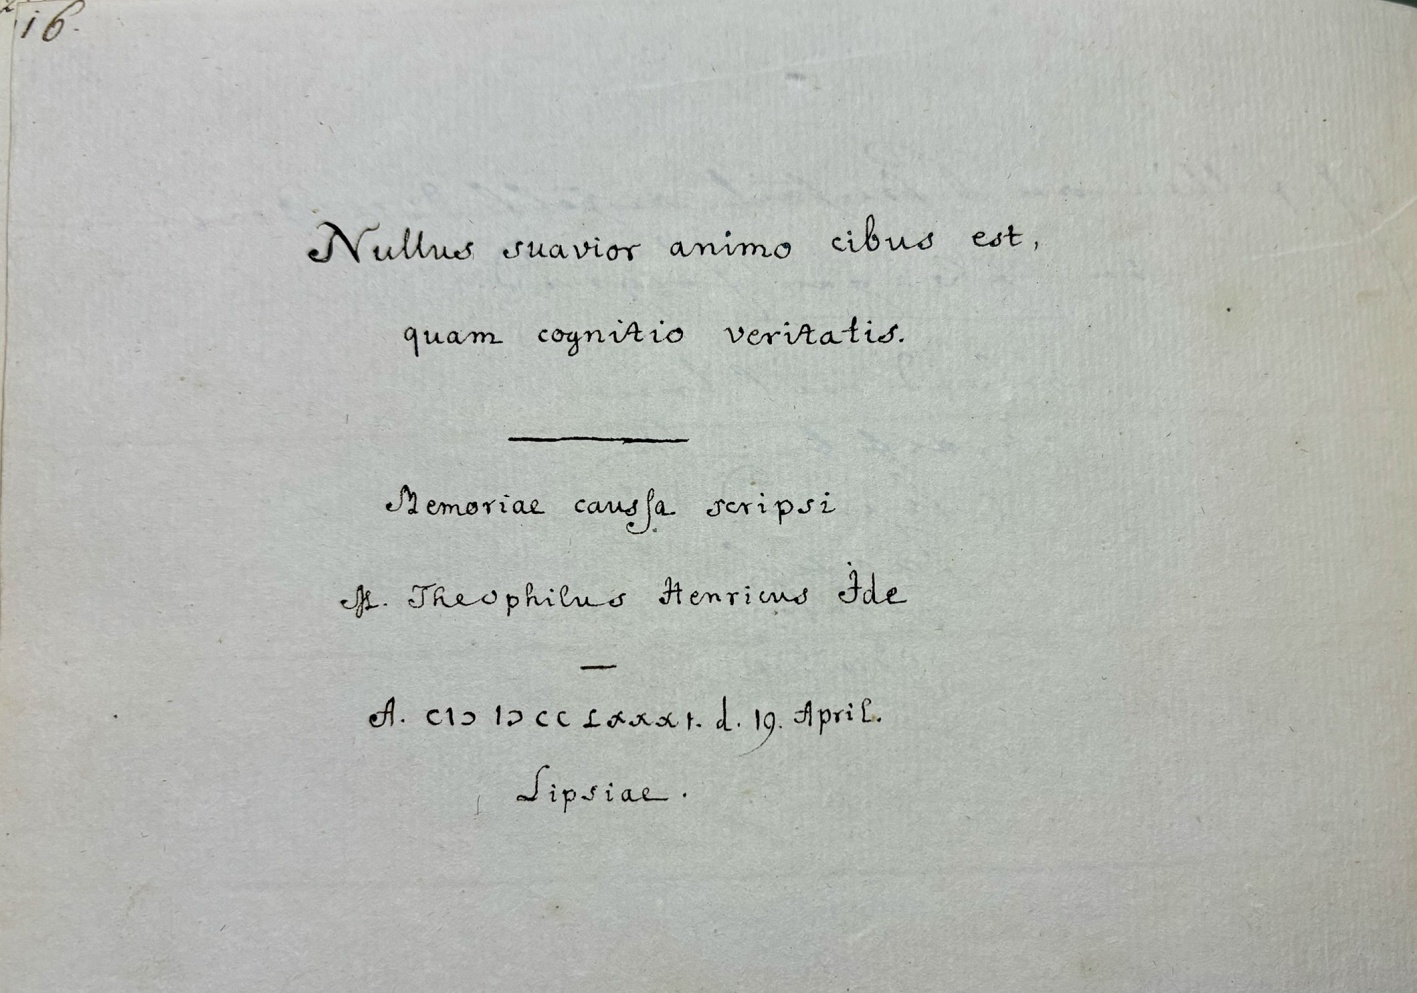 16.
Nullus suavior animo cibus est,
quam cognitio veritatis.
Memoriae causſa scripsi
M. Theophilus Henricus Ide
A. CIↃ IↃCC LXXXI. d. 19. April.
Lipsiae.